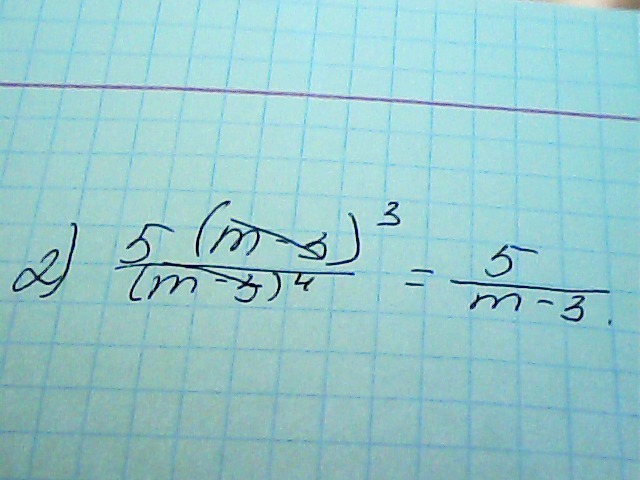 2) \frac{5(m-3)^3}{(m-3)^4} = \frac{5}{m-3}.